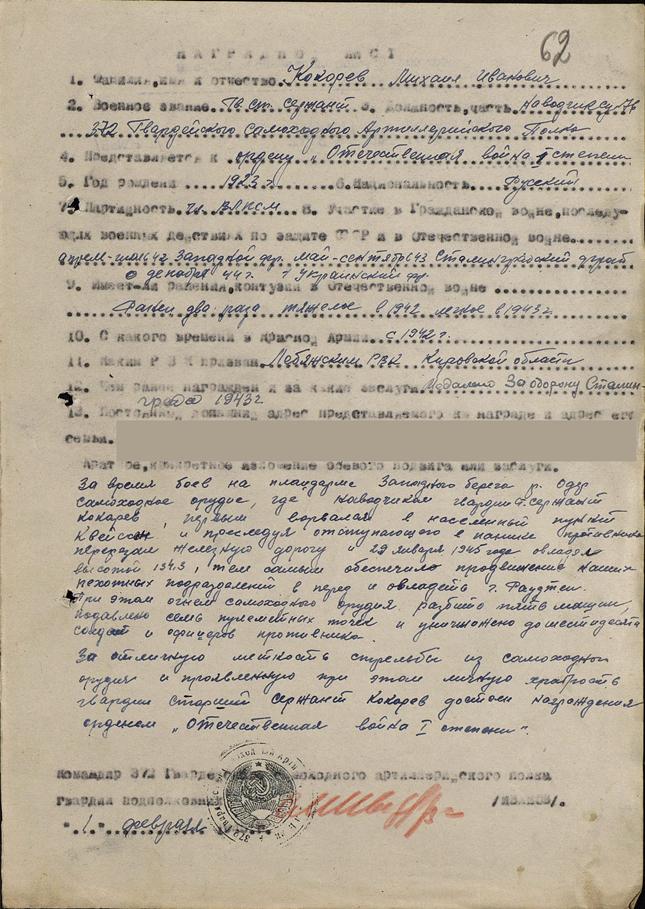 62
НАГРАДНОЙ ЛИСТ
1. Фамилия,имя и отчество. Кокорев Михаил Иванович
2. Военное звание. Гв. ст. сержант 3. Должность,часть. Наводчик СУ-76
372 Гвардейского Самоходного Артиллерийского Полка
4. Представляется к ордену „Отечественная война I степени
5. Год рождени 1923 г. 6.Национальность. Русский
7. Партийность. чл. ВЛКСМ. 8. Участие в Гражданской войне,последу-
ющих военных действиях по защите СССР и в Отечественной войне.
апрель-июль 42 Западной фр. май-сентябрь 43 Сталинградский фронт
с декабря 44 г. 1 Украинский фр.
9. Имеет-ли ранения,контузии в Отечественной войне
Ранен два раза тяжелое в 1942 легкое в 1943 г.
10. С какого времени в Красной Армии. с 1942 г.
11. Каким Р В К призван. Лебяжским РВК Кировской области
12. Чем ранее награжден и за какие заслуги Медалью За оборону Сталин-
града 1943 г.
13. Постоянный домашний адрес представляемого к награде и адрес его
семьи.
Краткое,конкретное изложение боевого подвига или заслуги.
За время боев на плацдарме Западного берега р. Одер
самоходное орудие, где наводчиком гвардии ст. сержант
Кокарев, первым ворвалась в населенный пункт
и преследуя отступающего в панике противника
перерезал железную дорогу и 29 января 1945 года овладел
высотой 134.3, тем самым обеспечило продвижение наших
пехотных подразделений в перед и овладеть г. Раудтен.
При этом огнем самоходного орудия разбито пять машин,
подавлено семь пулеметных точек и уничтожено до шестидесяти
солдат и офицеров противника.
За отличную меткость стрельбы из самоходного
орудия и проявленную при этом личную храбрость
гвардии старший сержант Кокарев достоин награждения
орденом „Отечественная война I степени".
Командир 372 Гвардейского самоходного артиллерийского полка
гвардии подполковник /ИВАНОВ/.
"1" февраля